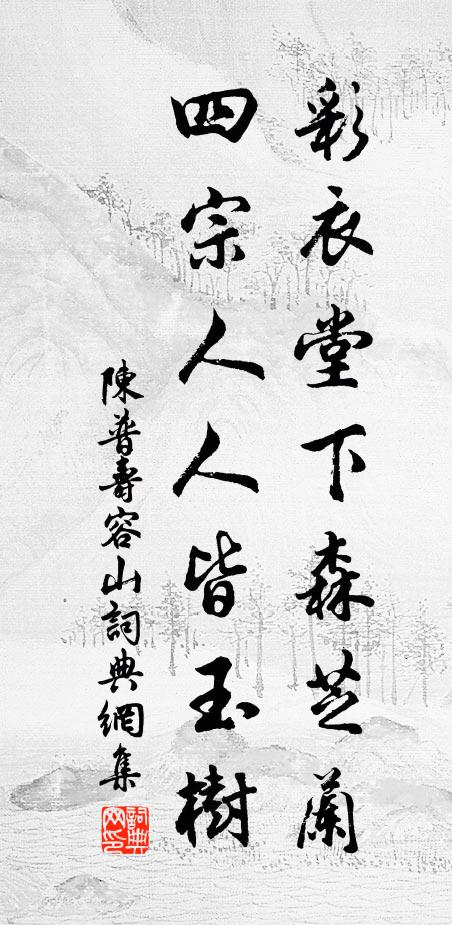 彩衣堂下森芝蘭
四宗人人皆玉樹
陳普壽容山詞典網集
詞典网印